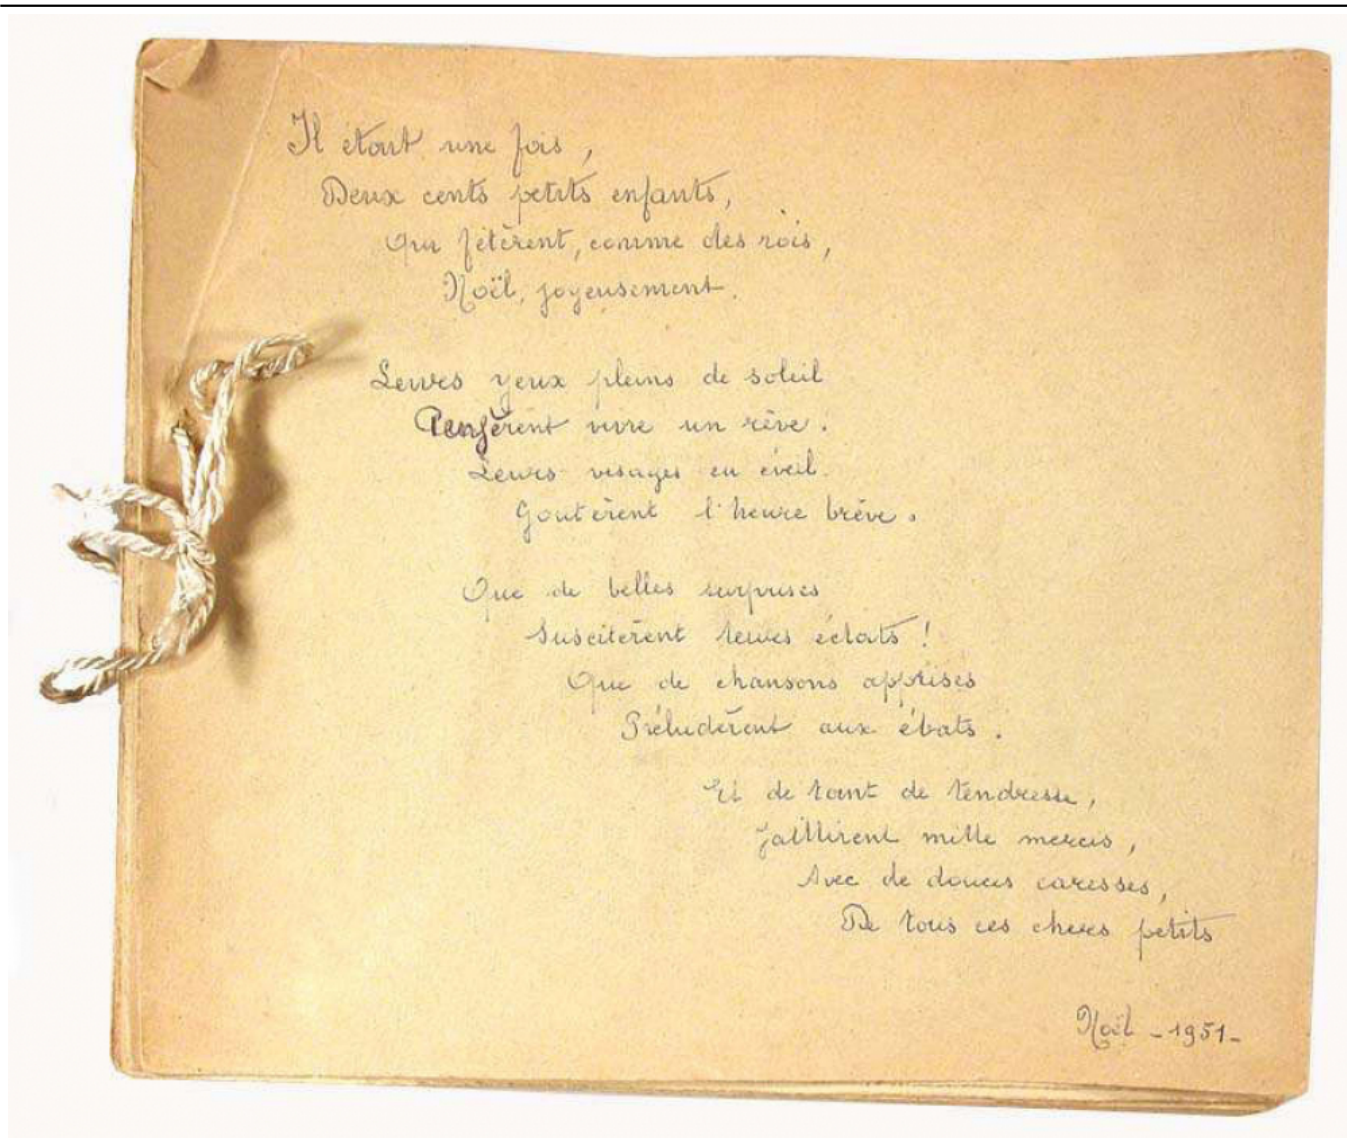 Il était une fois,
Deux cents petits enfants,
Qui fêtèrent, comme des rois,
Noël, joyeusement.
Leurs yeux pleins de soleil
Pensèrent vivre un rêve.
Leurs visages en éveil.
Goutèrent l'heure brève.
Que de belles surprises
Suscitèrent leurs éclats !
Que de chansons apprises
Préludèrent aux ébats.
Et de tant de tendresse,
Jaillirent mille mercis,
Avec de douces caresses,
De tous ces chers petits
Noël - 1951 -